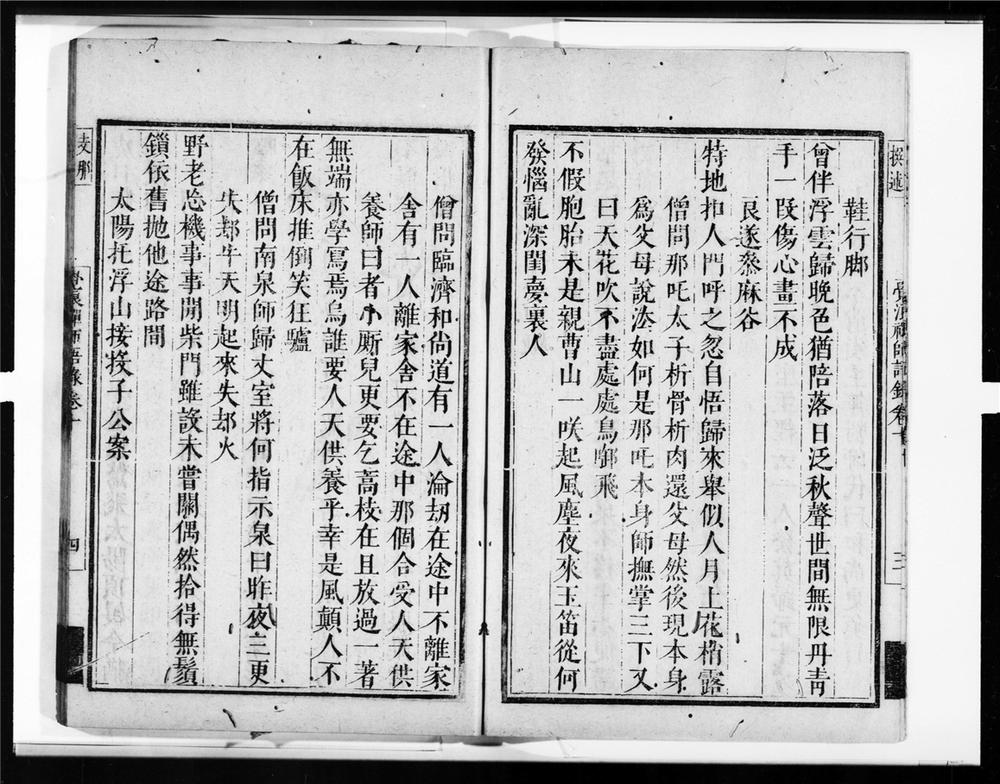 撰述
鞋行脚
曾伴浮雲歸晚色猶陪落日泛秋聲世間無限丹青
手一段傷心畫不成
良遂叅麻谷
特地扣人門呼之忽自悟歸來舉似人月上花梢露
僧問那吒太子析骨析肉還父母然後現本身
爲父母說法如何是那吒本身師撫掌三下又
曰天花吹不盡處處鳥啣飛
不假胞胎未是親曹山一咲起風塵夜來玉笛從何
發惱亂深閨夢裏人
三
僧問臨濟和尚道有一人淪劫在途中不離家
舍有一人離家舍不在途中那個合受人天供
養師曰者小厮兒更要乞蒿枝在且放過一著
無端亦學寫焉烏誰要人天供養乎幸是風顛人不
在飯床推倒笑狂驢
僧問南泉師歸丈室將何指示泉曰昨夜三更
失却牛天明起來失却火
野老忘機事事閒柴門雖設未嘗關偶然拾得無鬚
鎖依舊抛他途路間
太陽托浮山接投子公案
支那
禪師語錄卷十
四